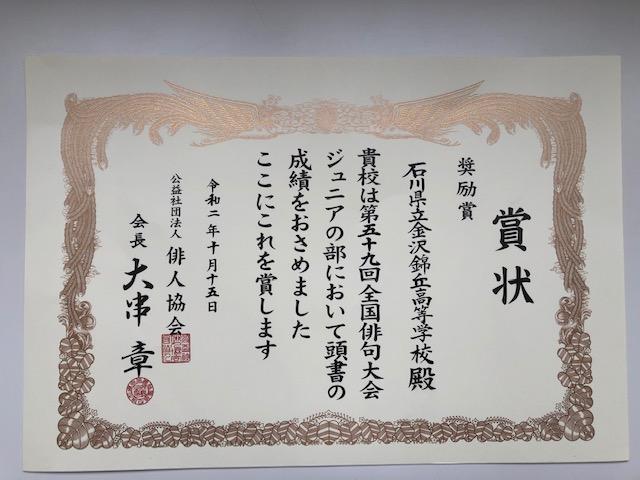 賞状
奨励賞
石川県立金沢錦丘高等学校殿
貴校は第五十九回全国俳句大会
ジュニアの部において頭書の
成績をおさめました
ここにこれを賞します
令和二年十月十五日
公益社団法人 俳人協会
会長 大串 章